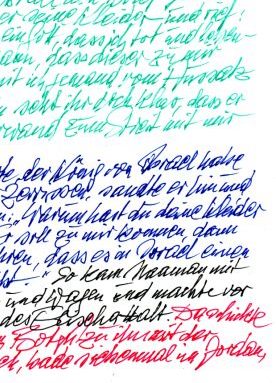 seine Kleider und rief:
ein Gott, dass ich tot und leben-
kann, dass dieser zu mir
mit ich jemand vom Aussatz
seht ihr doch klar, dass er
rwand zum Streit mit mir
te, der König von Israel habe
zerrissen, sandte er hin und
n: "Warum hast du deine Kleider
r soll zu mir kommen, dann
hren, dass es in Israel einen
bt." So kam Naaman mit
und Wagen und machte vor
des Elischa Halt. Da schickte
Boten zu ihm mit der
ch, bade siebenmal im Jordan,